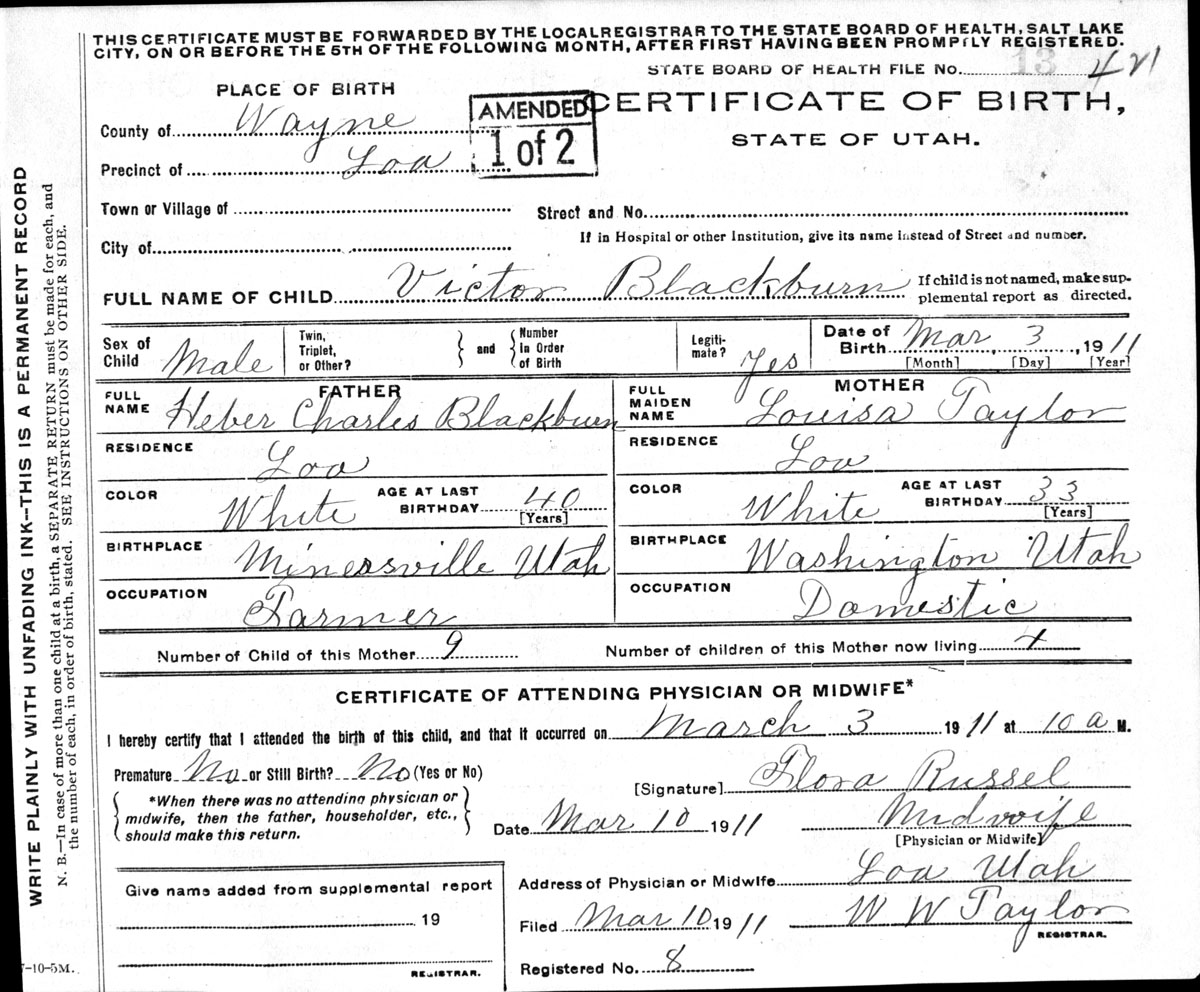 THIS CERTIFICATE MUST BE FORWARDED BY THE LOCAL REGISTRAR TO THE STATE BOARD OF HEALTH, SALT LAKE
CITY, ON OR BEFORE THE 5TH OF THE FOLLOWING MONTH, AFTER FIRST HAVING BEEN PROMPTLY REGISTERED.
STATE BOARD OF HEALTH FILE No. 13 421
PLACE OF BIRTH
AMENDED
1 of 2
CERTIFICATE OF BIRTH,
STATE OF UTAH.
County of Wayne
Precinct of Loa
Town or Village of
Street and No.
City of
If in Hospital or other Institution, give its name instead of Street and number.
FULL NAME OF CHILD Victor Blackburn
If child is not named, make sup-
plemental report as directed.
Sex of Child Male
Twin, Triplet, or Other?
and
Number In Order of Birth
Legiti-mate? Yes
Date of Birth Mar 3, 1911
[Month] [Day] [Year]
FATHER
FULL NAME Heber Charles Blackburn
RESIDENCE Loa
COLOR White AGE AT LAST BIRTHDAY 40
[Years]
BIRTHPLACE Minersville Utah
OCCUPATION Farmer
MOTHER
FULL MAIDEN NAME Louisa Taylor
RESIDENCE Loa
COLOR White AGE AT LAST BIRTHDAY 33
[Years]
BIRTHPLACE Washington Utah
OCCUPATION Domestic
Number of Child of this Mother 9
Number of children of this Mother now living
CERTIFICATE OF ATTENDING PHYSICIAN OR MIDWIFE*
I hereby certify that I attended the birth of this child, and that it occurred on March 3 1911 at 10 a M.
Premature No or Still Birth? No (Yes or No)
*When there was no attending physician or
midwife, then the father, householder, etc.,
should make this return.
[Signature] Flora Russel
Date Mar 10 1911
Midwife
[Physician or Midwife]
Give name added from supplemental report
19
REGISTRAR.
Address of Physician or Midwife Loa Utah
Filed Mar 10 1911 W W Taylor
REGISTRAR.
Registered No. 8
WRITE PLAINLY WITH UNFADING INK—THIS IS A PERMANENT RECORD
N. B.—In case of more than one child at a birth, a SEPARATE RETURN must be made for each, and
the number of each, in order of birth, stated. SEE INSTRUCTIONS ON OTHER SIDE.
-10-5M.